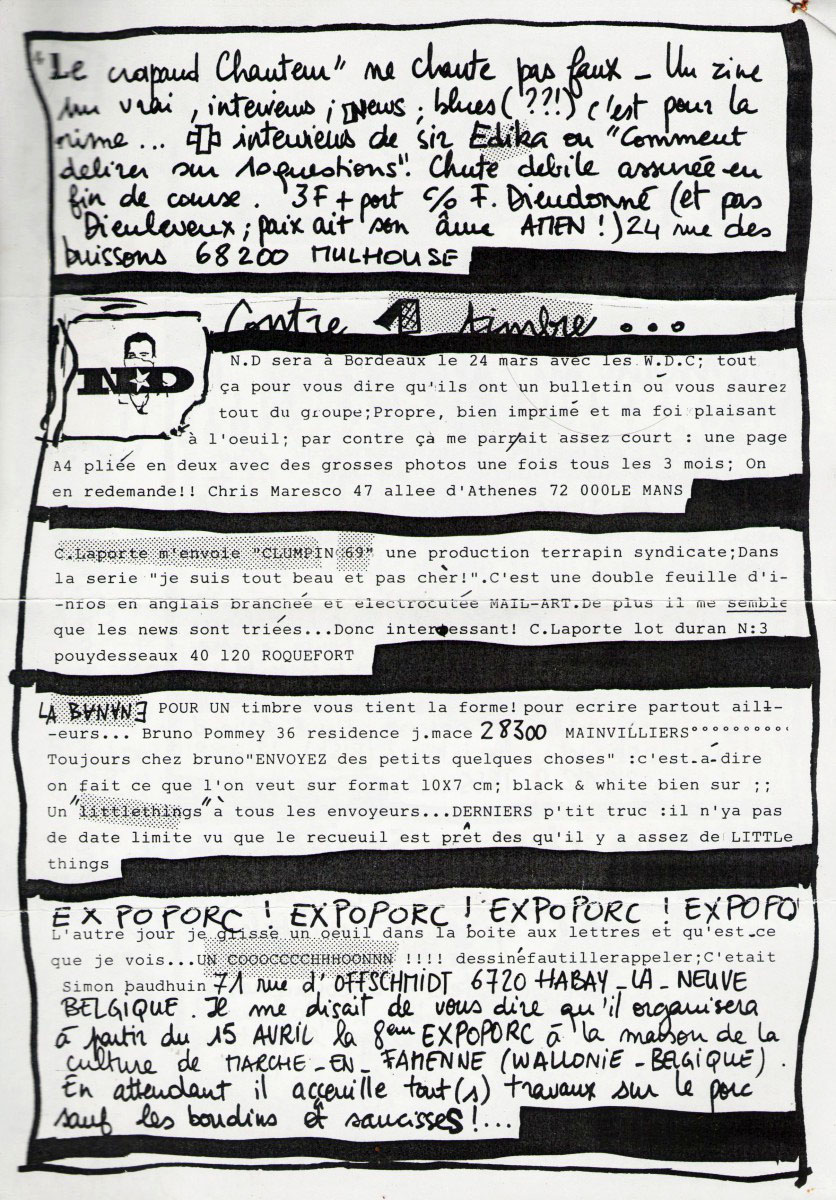 "Le crapaud Chanteur" ne chante pas faux _ Un zine
un vrai, interviews ; News ; blues (??!) c'est pour la
rime... interviews de sir Edika ou "Comment
délirer sur 10 questions". Chute débile assurée en
fin de course. 3F + port c/o F. Dieudonné (et pas
Dieuleveux ; paix ait son âme AMEN !) 24 rue des
buissons 68200 MULHOUSE
Contre 1 timbre ...
ND
N.D sera à Bordeaux le 24 mars avec les W.D.C; tout
ça pour vous dire qu'ils ont un bulletin où vous saurez
tout du groupe;Propre, bien imprimé et ma foi plaisant
à l'oeuil; par contre çà me parrait assez court : une page
A4 pliée en deux avec des grosses photos une fois tous les 3 mois; On
en redemande!! Chris Maresco 47 allee d'Athenes 72 000LE MANS
C.Laporte m'envoie "CLUMPIN 69" une production terrapin syndicate;Dans
la serie "je suis tout beau et pas chèr!".C'est une double feuille d'i-
-nfos en anglais branchée et electrocutée MAIL-ART.De plus il me semble
que les news sont triées...Donc interressant! C.Laporte lot duran N:3
pouydesseaux 40 120 ROQUEFORT
LA BANANE POUR UN timbre vous tient la forme! pour ecrire partout aill-
-eurs... Bruno Pommey 36 residence j.mace 28300 MAINVILLIERS°°°°°°°°°°
Toujours chez bruno"ENVOYEZ des petits quelques choses" :c'est-à-dire
on fait ce que l'on veut sur format 10X7 cm; black & white bien sur ;;
Un "littlethings" à tous les envoyeurs...DERNIERS p'tit truc :il n'ya pas
de date limite vu que le recueuil est prêt des qu'il y a assez de LITTLe
things
EXPOPORC ! EXPOPORC ! EXPOPORC ! EXPOPO
L'autre jour je glisse un oeuil dans la boite aux lettres et qu'est-ce
que je vois...UN COOOCCCCHHHOONNN !!!! dessinéfautillerappeler;C'etait
Simon baudhuin 71 rue d'OFFSCHMIDT 6720 HABAY_LA_NEUVE
BELGIQUE. Il me disait de vous dire qu'il organisera
à partir du 15 AVRIL la 8eme EXPOPORC à la maison de la
culture de MARCHE_EN_FAMENNE (WALLONIE_BELGIQUE).
En attendant il acceuille tout(s) travaux sur le porc
sauf les boudins et saucisses !...